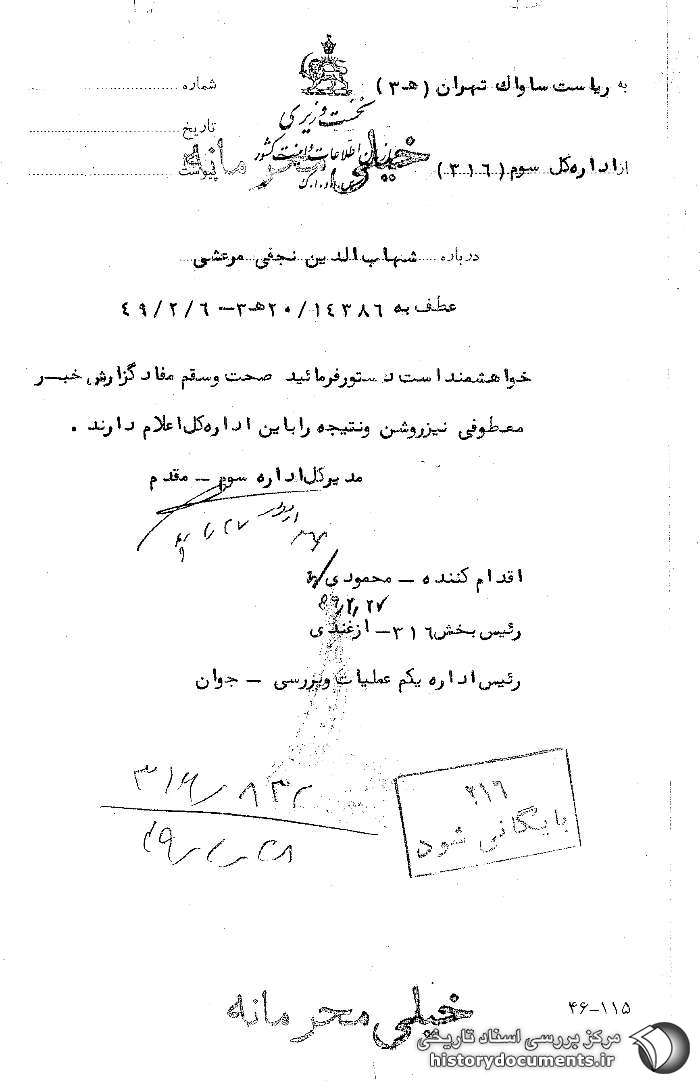 به ریاست ساواک تهران (هـ ۳)
شماره
نخست وزیری
تاریخ
سازمان اطلاعات و امنیت کشور
س.ا.و.ا.ک
خیلی محرمانه
از اداره کل سوم (۳۱۶)
پیوست
درباره شهاب الدین نجفی مرعشی
عطف به ۲۰/۱۴۳۸۶هـ۳ – ۴۹/۲/۶
خواهشمند است دستور فرمائید صحت و سقم مفاد گزارش خبر
معطوفی نیز روشن و نتیجه را باین اداره کل اعلام دارند .
مدیر کل اداره سوم – مقدم
اقدام کننده – محمودی
۴۹٫۲٫۲۷
رئیس بخش ۳۱۶ – ازغندی
رئیس اداره یکم عملیات و بررسی – جوان
۳۱۶/۸۳۲
۴۹/۲/۲۸
۳۱۶
بایگانی شود
خیلی محرمانه
۴۶-۱۱۵
مرکز بررسی اسناد تاریخی
historydocuments.ir